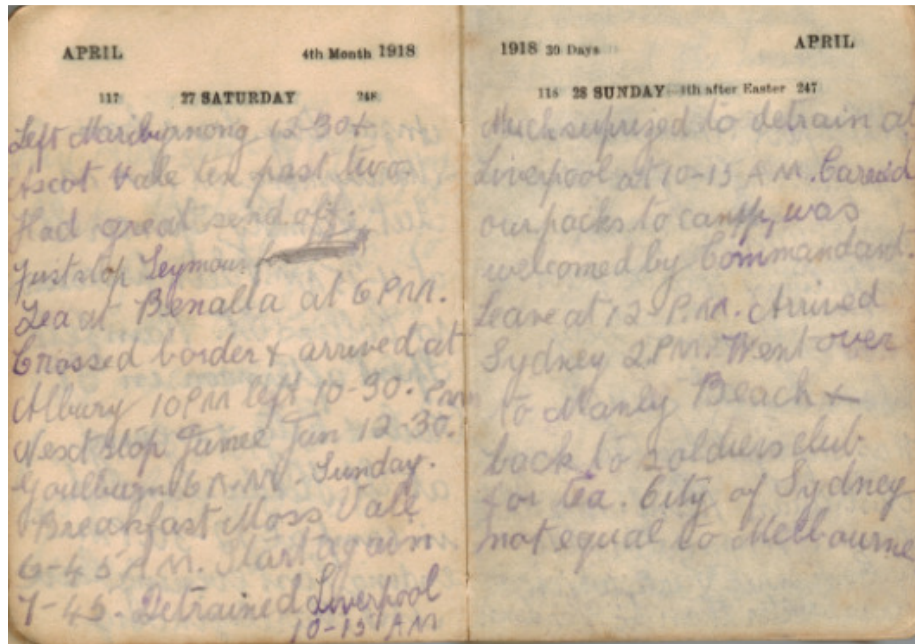 APRIL 4th Month 1918
117 27 SATURDAY 248
Left Maribyrnong 12-30 +
Ascot Vale ten past two.
Had great send off.
First stop Seymour
Tea at Benalla at 6 PM.
Crossed border + arrived at
Albury 10 PM left 10-30. PM
Next stop Junee Jun 12-30.
Goulburn 6 A.M. Sunday.
Breakfast Moss Vale
6-45 AM. Start again
7-45. Detrained Liverpool
10-15 AM
1918 30 Days APRIL
118 28 SUNDAY—4th after Easter 247
Much suprized to detrain at
Liverpool at 10-15 A M. Carried
our packs to camp, was
welcomed by Commandant.
Leave at 12 P.M. Arrived
Sydney 2 PM. Went over
to Manly Beach +
back to soldiers club
for tea. City of Sydney
not equal to Melbourne